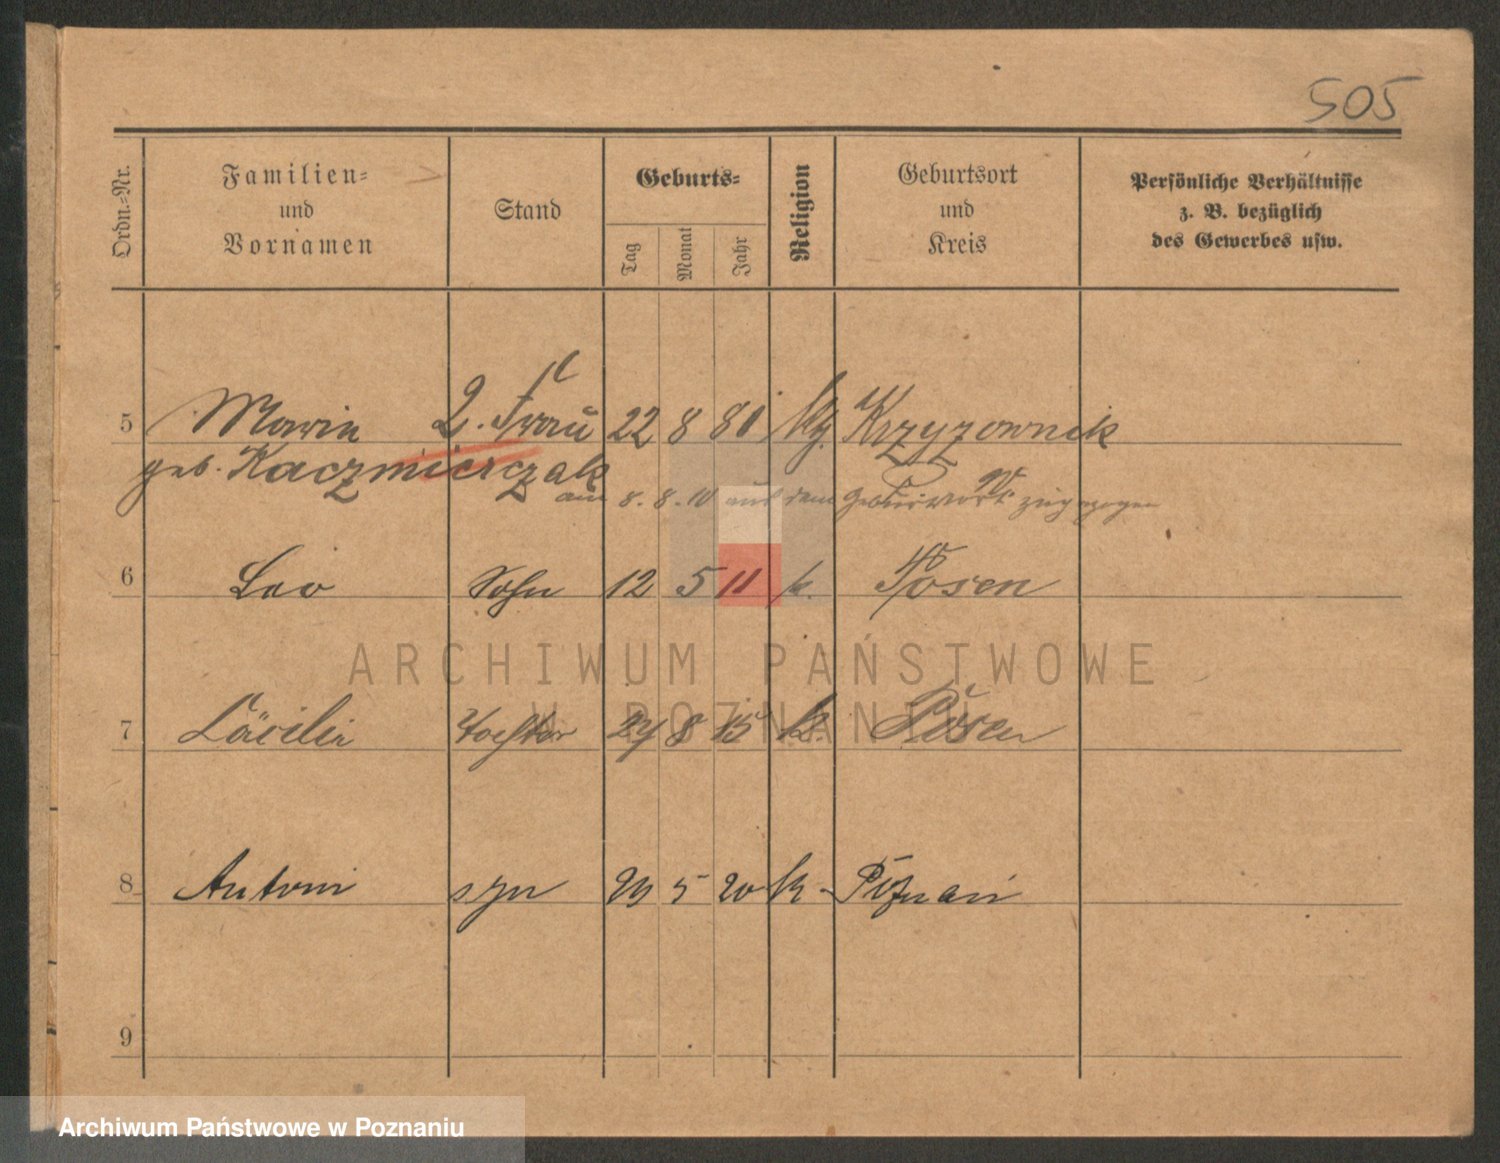 505
Ordn.-Nr.
Familien-
und
Vornamen
Stand
Geburts-
Tag
Monat
Jahr
Religion
Geburtsort
und
Kreis
Persönliche Verhältnisse
z. B. bezüglich
des Gewerbes usw.
5 Marie 2. Frau 22 8 80 kg. Krzyzownik
geb. Kaczmierczak
am 8. 8. 10 aus dem Geburtsort zugezogen
6 Leo Sohn 12 5 11 k. Posen
ARCHIWUM PAŃSTWOWE
W POZNANIU
7 Cäcilie Tochter 24 8 15 k. Posen
8 Antoni syn 29 5 20 k Poznań
9
Archiwum Państwowe w Poznaniu